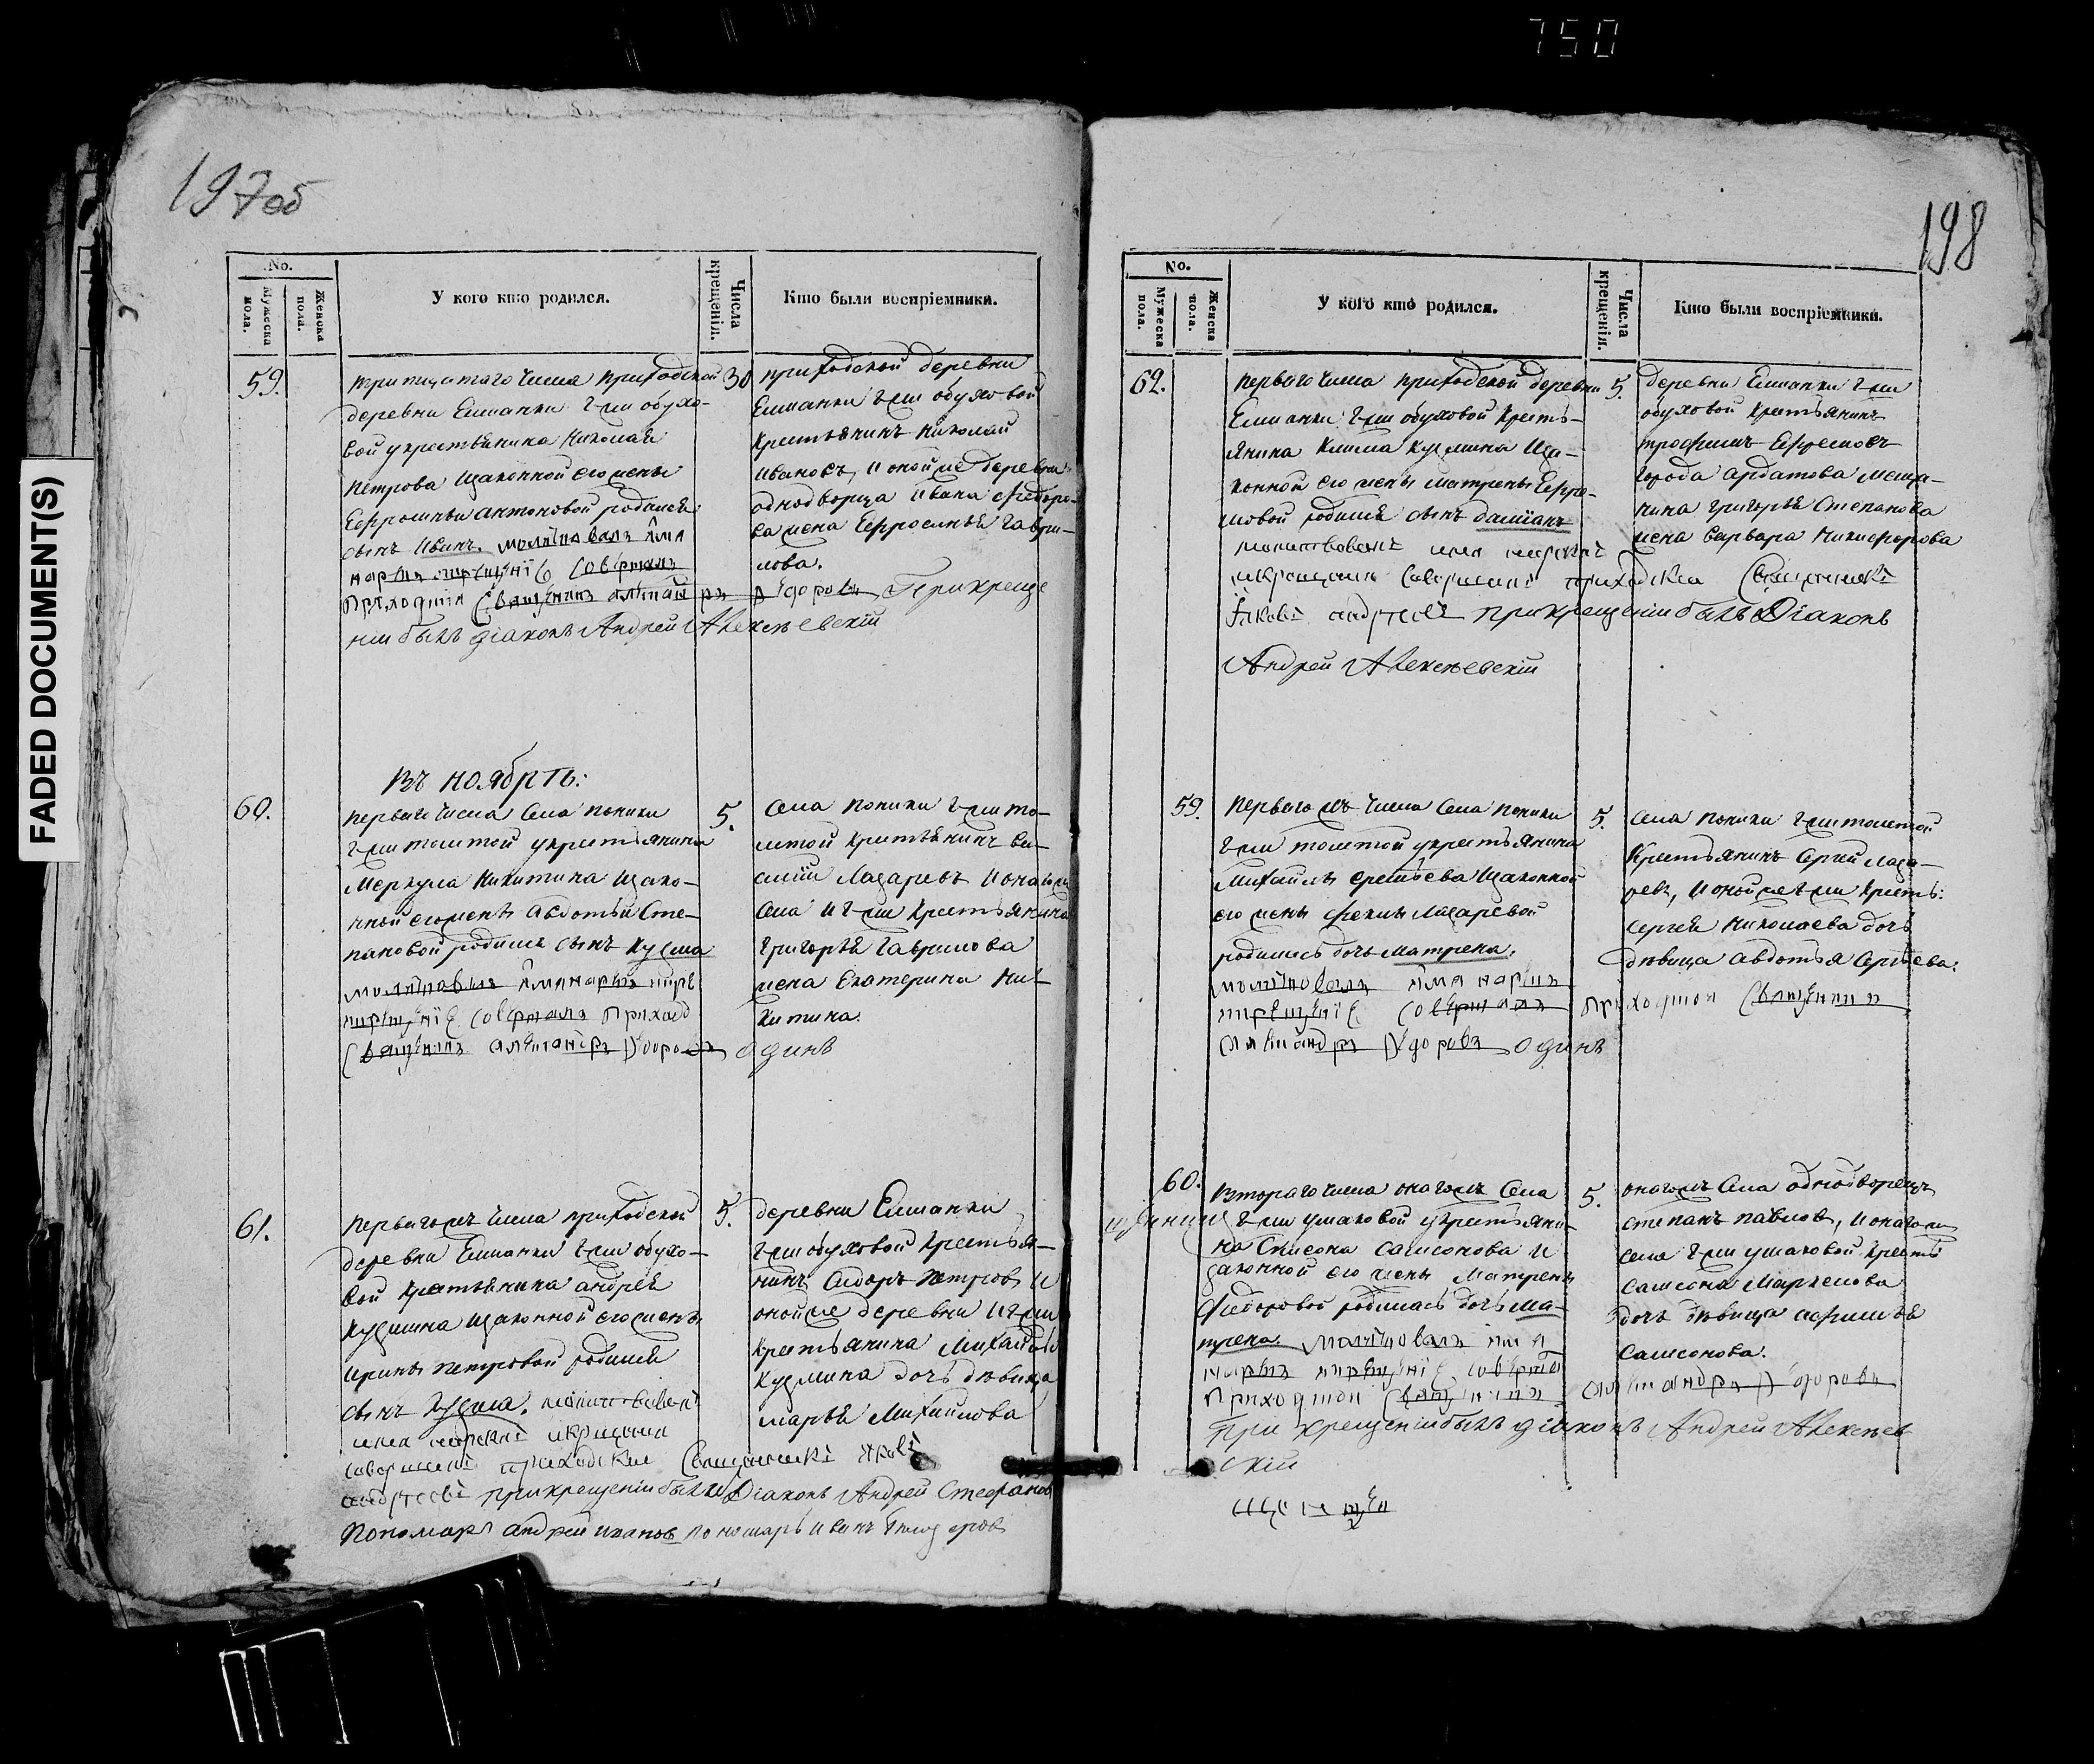 750
FADED DOCUMENT(S)
197об
No.
Мужеска пола.
Женска пола.
У кого кто родился.
Числа крещенія.
Кто были воспріемники.
59.
тритцатаго числа приходской
деревни Елшанки г-жи обухо-
вой у крестьянина Николая
Петрова изаконной его жены
Ефросиньи антоновой родился
сынъ Иванъ. молитвовалъ имя
нарекъ крещеніе совершалъ
приходскій священникъ
ніи былъ діаконъ Андрей Алексѣевскій
30
приходской деревни
Елшанки г-жи обуховой
крестьянинъ Николай
Ивановъ, и оной же деревни
однодворца Ивана Федоро-
ва жена Ефросинья Гаври-
лова.
При креще
Въ ноябрѣ:
60.
перваго числа села Поники
г-жи толстой у крестьянина
Меркула Никитина изако-
нной его жены Авдотьи Сте-
пановой родился сынъ Кузма
молитвовалъ имя нарекъ икре
крещеніе совершалъ приход
священникъ
одинъ
5.
села Поники г-жи то-
лстой крестьянинъ Ва-
силій Лазаревъ и онаго ж
села и г-жи крестьянина
Григорья Гаврилова
жена Екатерина Ни-
китина.
61.
перваго жъ числа приходской
деревни Елшанки г-жи обухо-
вой крестьянина андрея
Кузмина изаконной его жены
Ирины Петровой родился
сынъ Кузма. молитвовалъ
имя нарекъ икрещеніе
совершалъ приходской священникъ Яковъ
андреевъ при крещеніи были Діаконъ Андрей Стефановъ
Пономарь андрей иванов пономарь иванъ
5.
деревни Елшанки
г-жи обуховой крестья-
нинъ Сидоръ Петровъ и
оной же деревни и г-жи
крестьянина Михайлы
Кузмина дочь дѣвица
марья Михайлова
198
No.
Мужеска пола.
Женска пола.
У кого кто родился.
Числа крещенія.
Кто были воспріемники.
62.
перваго числа приходской деревни
Елшанки г-жи обуховой кресть-
янина Клима Кузмина иза-
конной его жены матрены Ефре-
мовой родился сынъ даміанъ
молитвовалъ имя нарекъ
икрещеніе совершалъ приходской священникъ
Іаковъ андреевъ при крещеніи былъ Діаконъ
Андрей Алексѣевскій
5.
деревни Елшанки г-жи
обуховой крестьянинъ
трофимъ Ефремовъ
города ардатова меща-
нина григорья Степанова
жена варвара Никифорова
59.
Перваго жъ числа села Поники
г-жи толстой у крестьянина
Михайлы изаконной
его жены феклы Лазаревой
родилась дочь матрена.
молитвовалъ имя нарекъ
крещеніе совершалъ приходской священникъ
одинъ
5.
села Поники г-жи толстой
крестьянинъ Сергѣй Лаза-
ревъ, и оной же г-жи кресть:
Сергея Николаева дочь
дѣвица Авдотья Сергѣева.
60.
Втораго числа онаго жъ села
г-жи ушаковой у крестьяни-
на Самсонова и
законной его жены Матрены
Федоровой родилась дочь ма-
трена. молитвовалъ имя
нарекъ крещеніе соверша
приходской священникъ
При крещеніи былъ діаконъ Андрей Алексѣев
скій
5.
онаго жъ села однодворецъ
степанъ павловъ, и онаго ж
села г-жи ушаковой кресть
Самсона Маркелова
дочь дѣвица
Самсонова.